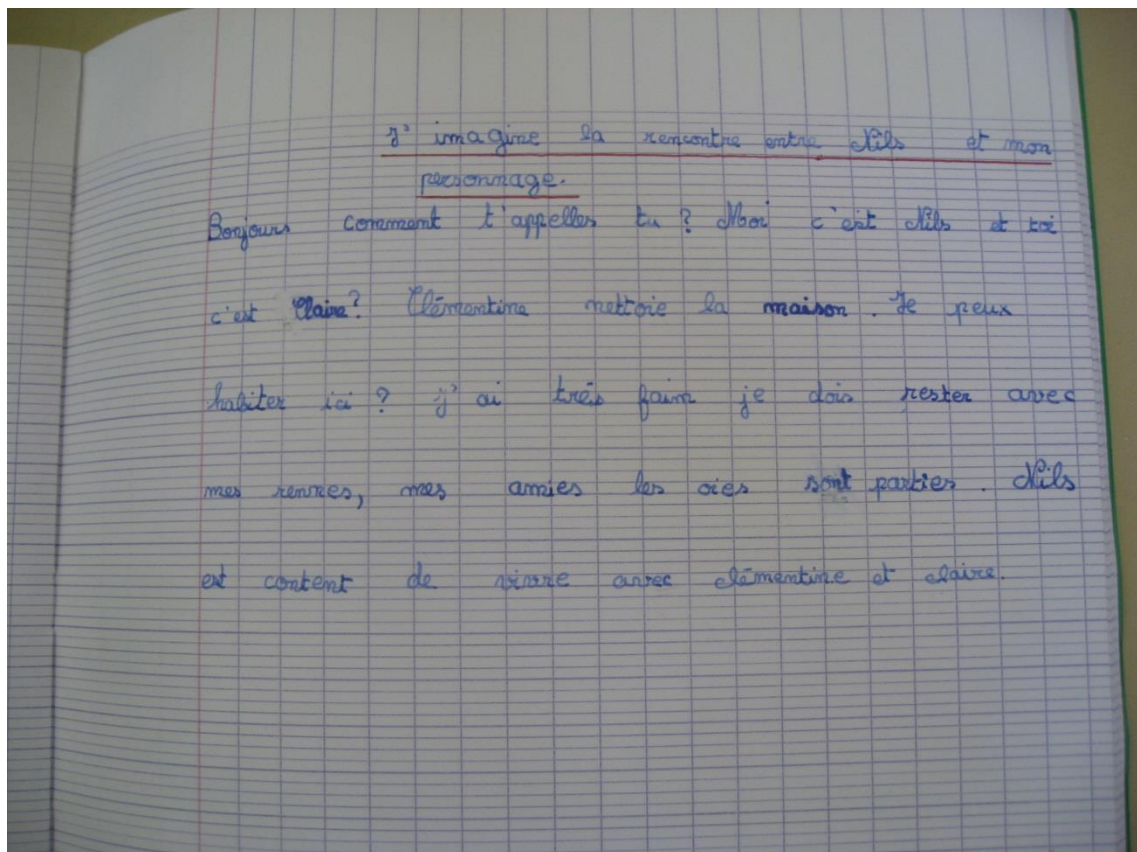 J'imagine la rencontre entre Nils et mon
personnage.
Bonjours comment t'appelles tu ? Moi c'est Nils et toi
c'est Claire? Clémentine nettoie la maison. Je peux
habiter ici ? j'ai trés faim je dois rester avec
mes rennes, mes amies les oies sont parties. Nils
est content de vivre avec clémentine et claire.